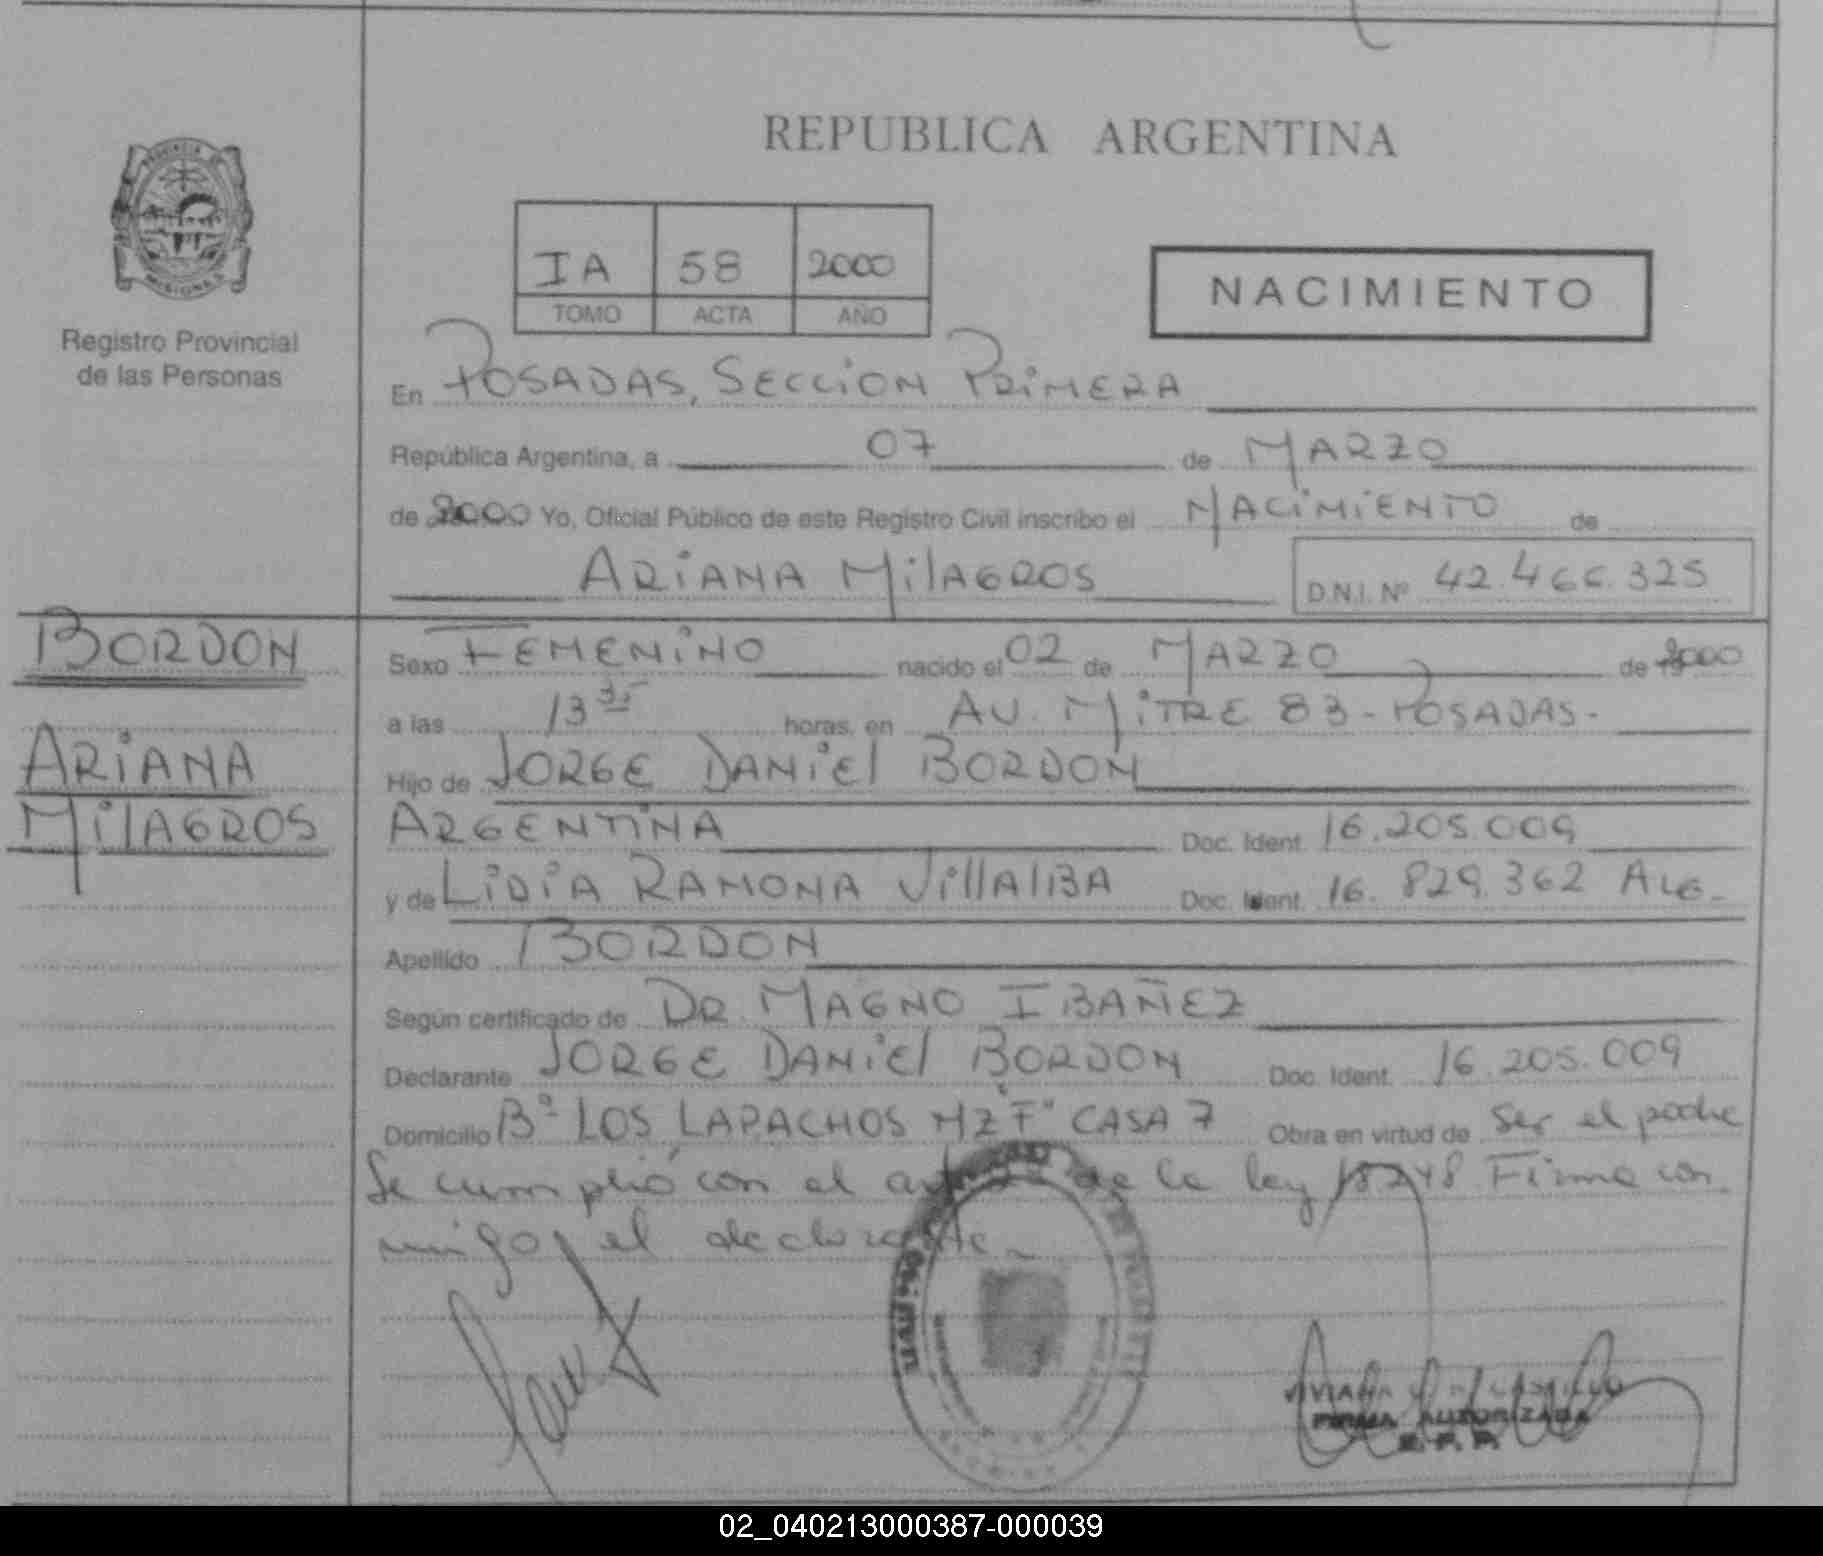 REPUBLICA ARGENTINA
PROVINCIA DE
MISIONES
Registro Provincial
de las Personas
IA 58 2000
TOMO ACTA AÑO
NACIMIENTO
En POSADAS, SECCION PRIMERA
República Argentina, a 07 de MARZO
de 2000 Yo, Oficial Público de este Registro Civil inscribo el NACIMIENTO de
ARIANA MILAGROS D.N.I. Nº 42.466.325
BORDON
ARIANA
MILAGROS
Sexo FEMENINO nacido el 02 de MARZO de 2000
a las 13 35 horas, en AV. MITRE 83 - POSADAS -
Hijo de JORGE DANIEL BORDON
ARGENTINA Doc. Ident. 16.205.009
y de LIDIA RAMONA VILLALBA Doc. Ident. 16.829.362 ARG -
Apellido BORDON
Según certificado de DR. MAGNO IBAÑEZ
Declarante JORGE DANIEL BORDON Doc. Ident. 16.205.009
Domicilio Bº LOS LAPACHOS MZ "F" CASA 7 Obra en virtud de ser el padre
Se cumplió con el de la ley 18248 Firma con
migo, el declarante. -
FIRMA AUTORIZADA
02_040213000387-000039